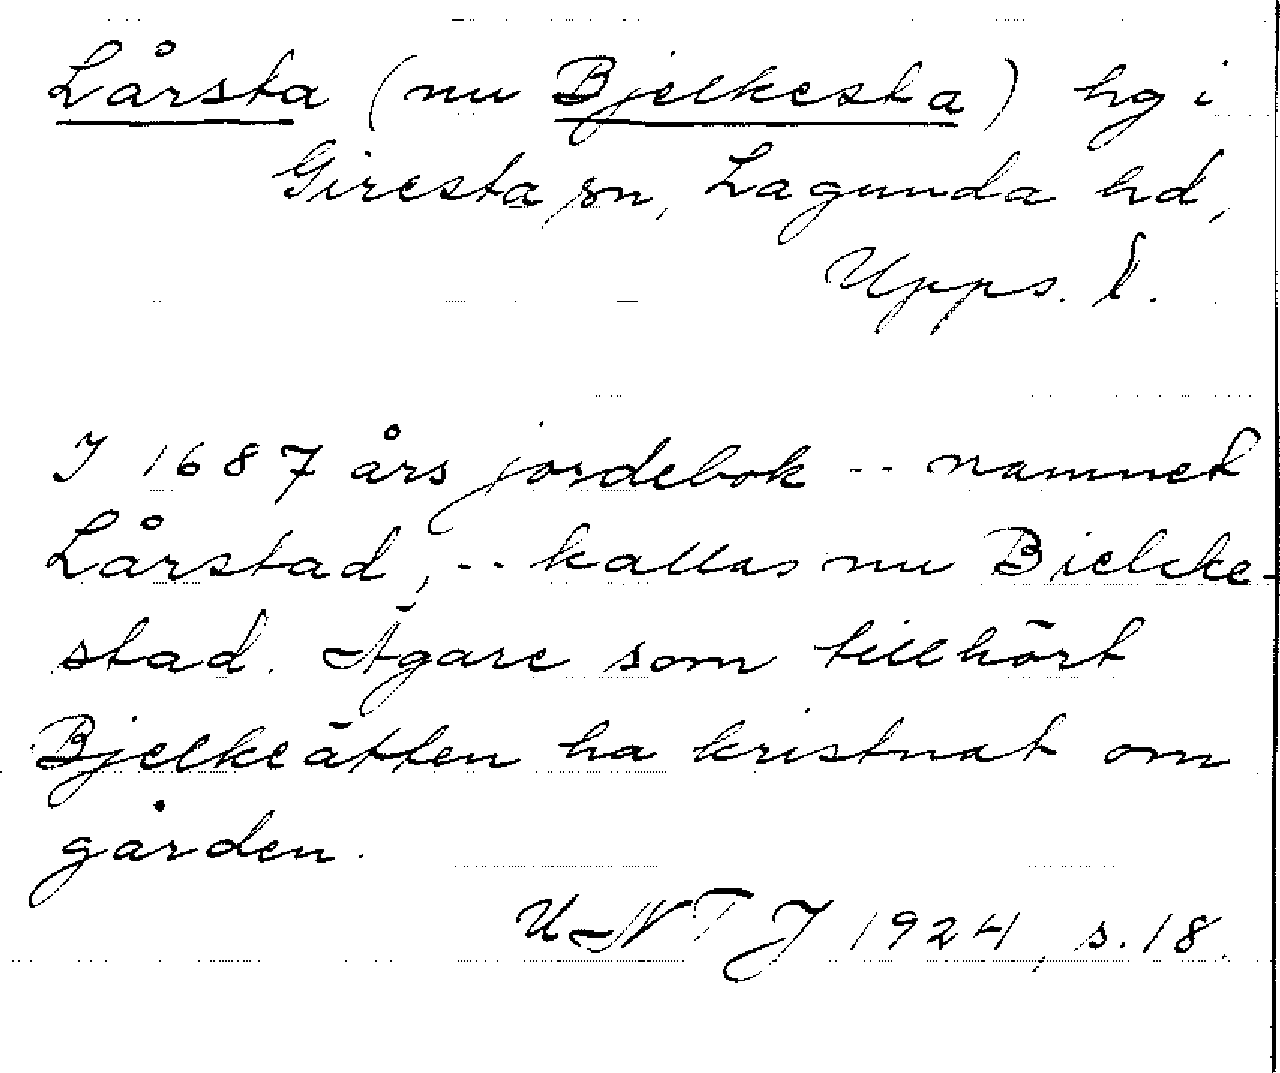 Lårsta (nu Bjelkesta) hg i
Giresta sn, Lagunda hd,
Upps. l.
I 1687 års jordebok -- namnet
Lårstad, -- kallas nu Bielcke-
stad. Ägare som tillhört
Bjelkeätten ha kristnat om
gården.
UNTJ 1924, s. 18.